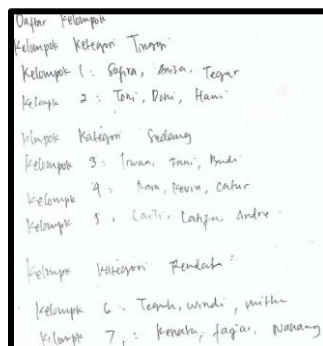 Daftar Kelompok
Kelompok Kategori Tinggi
Kelompok 1 : Safira, Anisa, Tegar
Kelompok 2 : Toni, Doni, Hani
Kelompok Kategori Sedang
Kelompok 3 : Irwan, Fani, Budi
Kelompok 4 : Rara, Kevin, Catur
Kelompok 5 : Laili, Latifa, Andre
Kelompok Kategori Rendah :
Kelompok 6 : Teguh, windi,
Kelompok 7 : Renata, fajar, Nanang